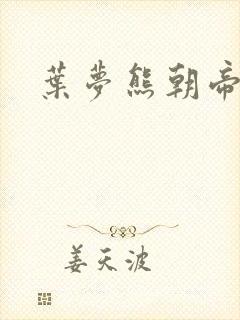 葉夢熊朝帝
姜天波